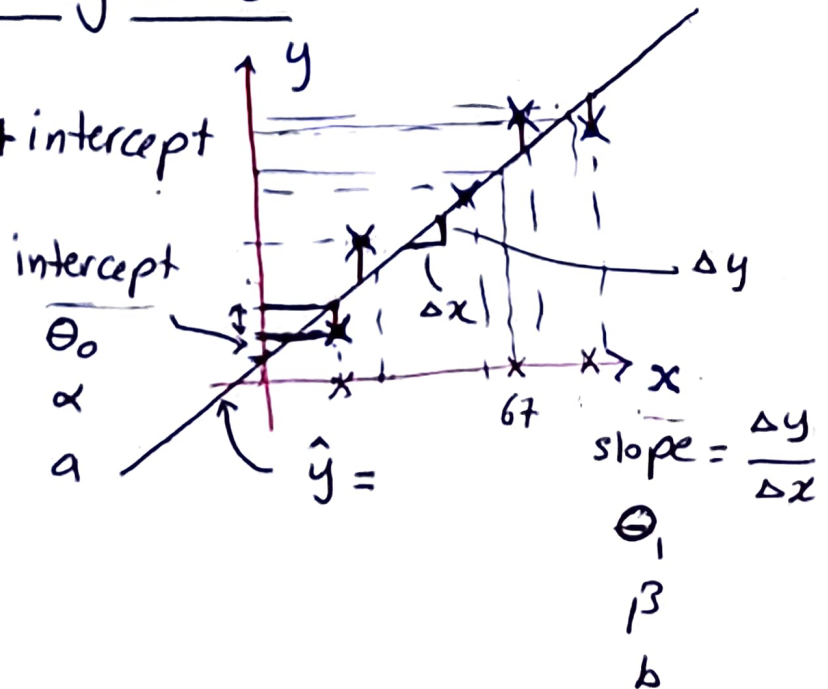 y
+ intercept
intercept
θ₀
α
a
Δy
Δx
x
67
ŷ =
slope = Δy / Δx
θ₁
β
b